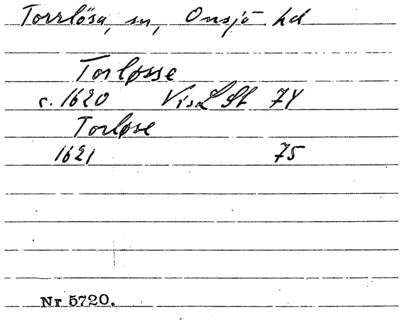 Torrlösa, sn, Onsjö hd
Torløsse
c. 1620 VisLSt 74
Torløse
1621 75
Nr 5720.